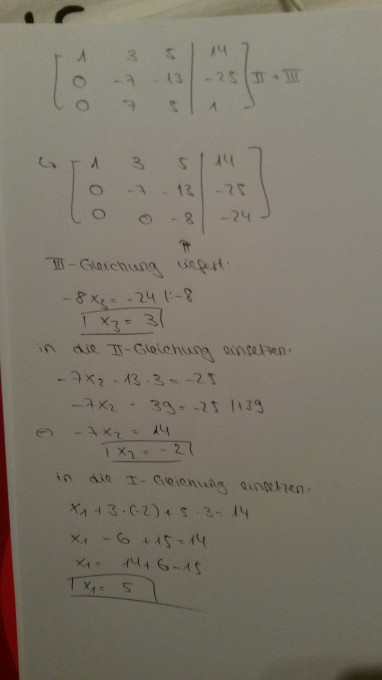 1 3 5 | 14
0 -7 -13 | -25 II + III
0 7 5 | 1
↳ 1 3 5 | 14
0 -7 -13 | -25
0 0 -8 | -24
⇑
III-Gleichung liefert.
-8x₃ = -24 |:-8
x₃ = 3
in die II-Gleichung einsetzen.
-7x₂ - 13·3 = -25
-7x₂ - 39 = -25 |+39
⇔ -7x₂ = 14
x₂ = -2
in die I-Gleichung einsetzen.
x₁ + 3·(-2) + 5·3 = 14
x₁ - 6 + 15 = 14
x₁ = 14 + 6 - 15
x₁ = 5